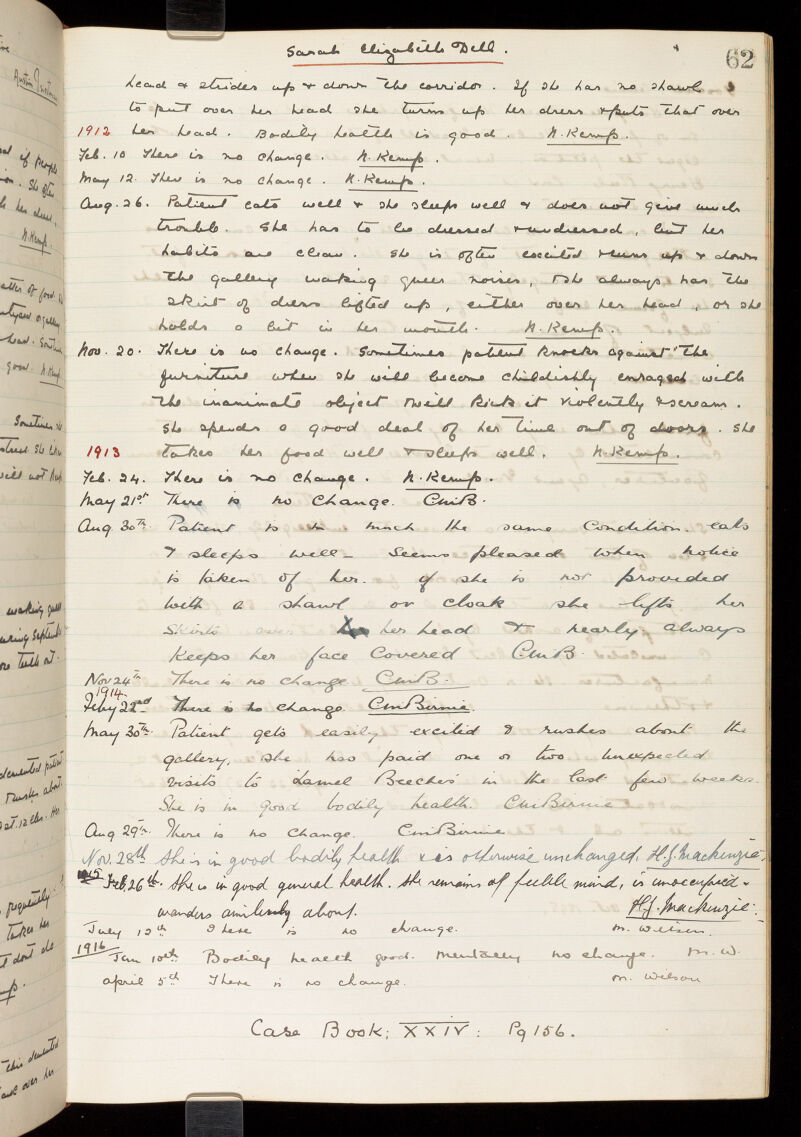 Sarah Elizabeth Dell.
62
head & strides up & down the corridor. If she has no shawl
to put over her head she turns up her dress & puts that over
1912 her head. Bodily health is good. N. Kemp.
Feb. 10 There is no change. N. Kemp.
May 12. There is no change. N. Kemp.
Aug. 26. Patient eats well & she sleeps well & does not give much
trouble. She has to be dressed & undressed, but her
habits are clean. She is often excited & runs up & down
the gallery making queer noises, & she always has the
skirt of dress lifted up, either over her head, or she
holds a bit in her mouth. N. Kemp.
Nov. 20. There is no change. Sometimes patient knocks against the
furniture when she will become childishly enraged with
the inanimate object & will kick it violently & scream.
She spends a good deal of her time out of doors. She
1913 takes her food well & sleeps well. N. Kemp.
Feb. 24. There is no change. N. Kemp.
May 21st There is no change. CMB.
Aug 30th Patient is in much the same condition. eats
& sleeps well – Seems pleased when notice
is taken of her. If she is not provided
with a shawl or cloak she lifts her
skirts over her head & nearly always
keeps her face covered CMB.
Nov 24th There is no change CMB.
1914
Feby 22nd There is no change. CMBirnie.
May 30th Patient gets easily excited & rushes about the
gallery, she has paid one or two unexpected
visits to Lamel Beeches in the last few weeks.
She is in good bodily health. CMBirnie
Aug 29th There is no change. CMBirnie
Nov. 28th She is in good bodily health & is otherwise unchanged. H.J. Mackenzie.
1915 Feb. 26th. She is in good general health. She remains of feeble mind, is unoccupied &
wanders aimlessly about. H.J. Mackenzie.
July 12th There is no change. M. Wilson.
1916
Jan 10th Bodily health good. Mentally no change. M. W.
April 5th There is no change. M. Wilson
Case Book; XXIV: Pg 156.